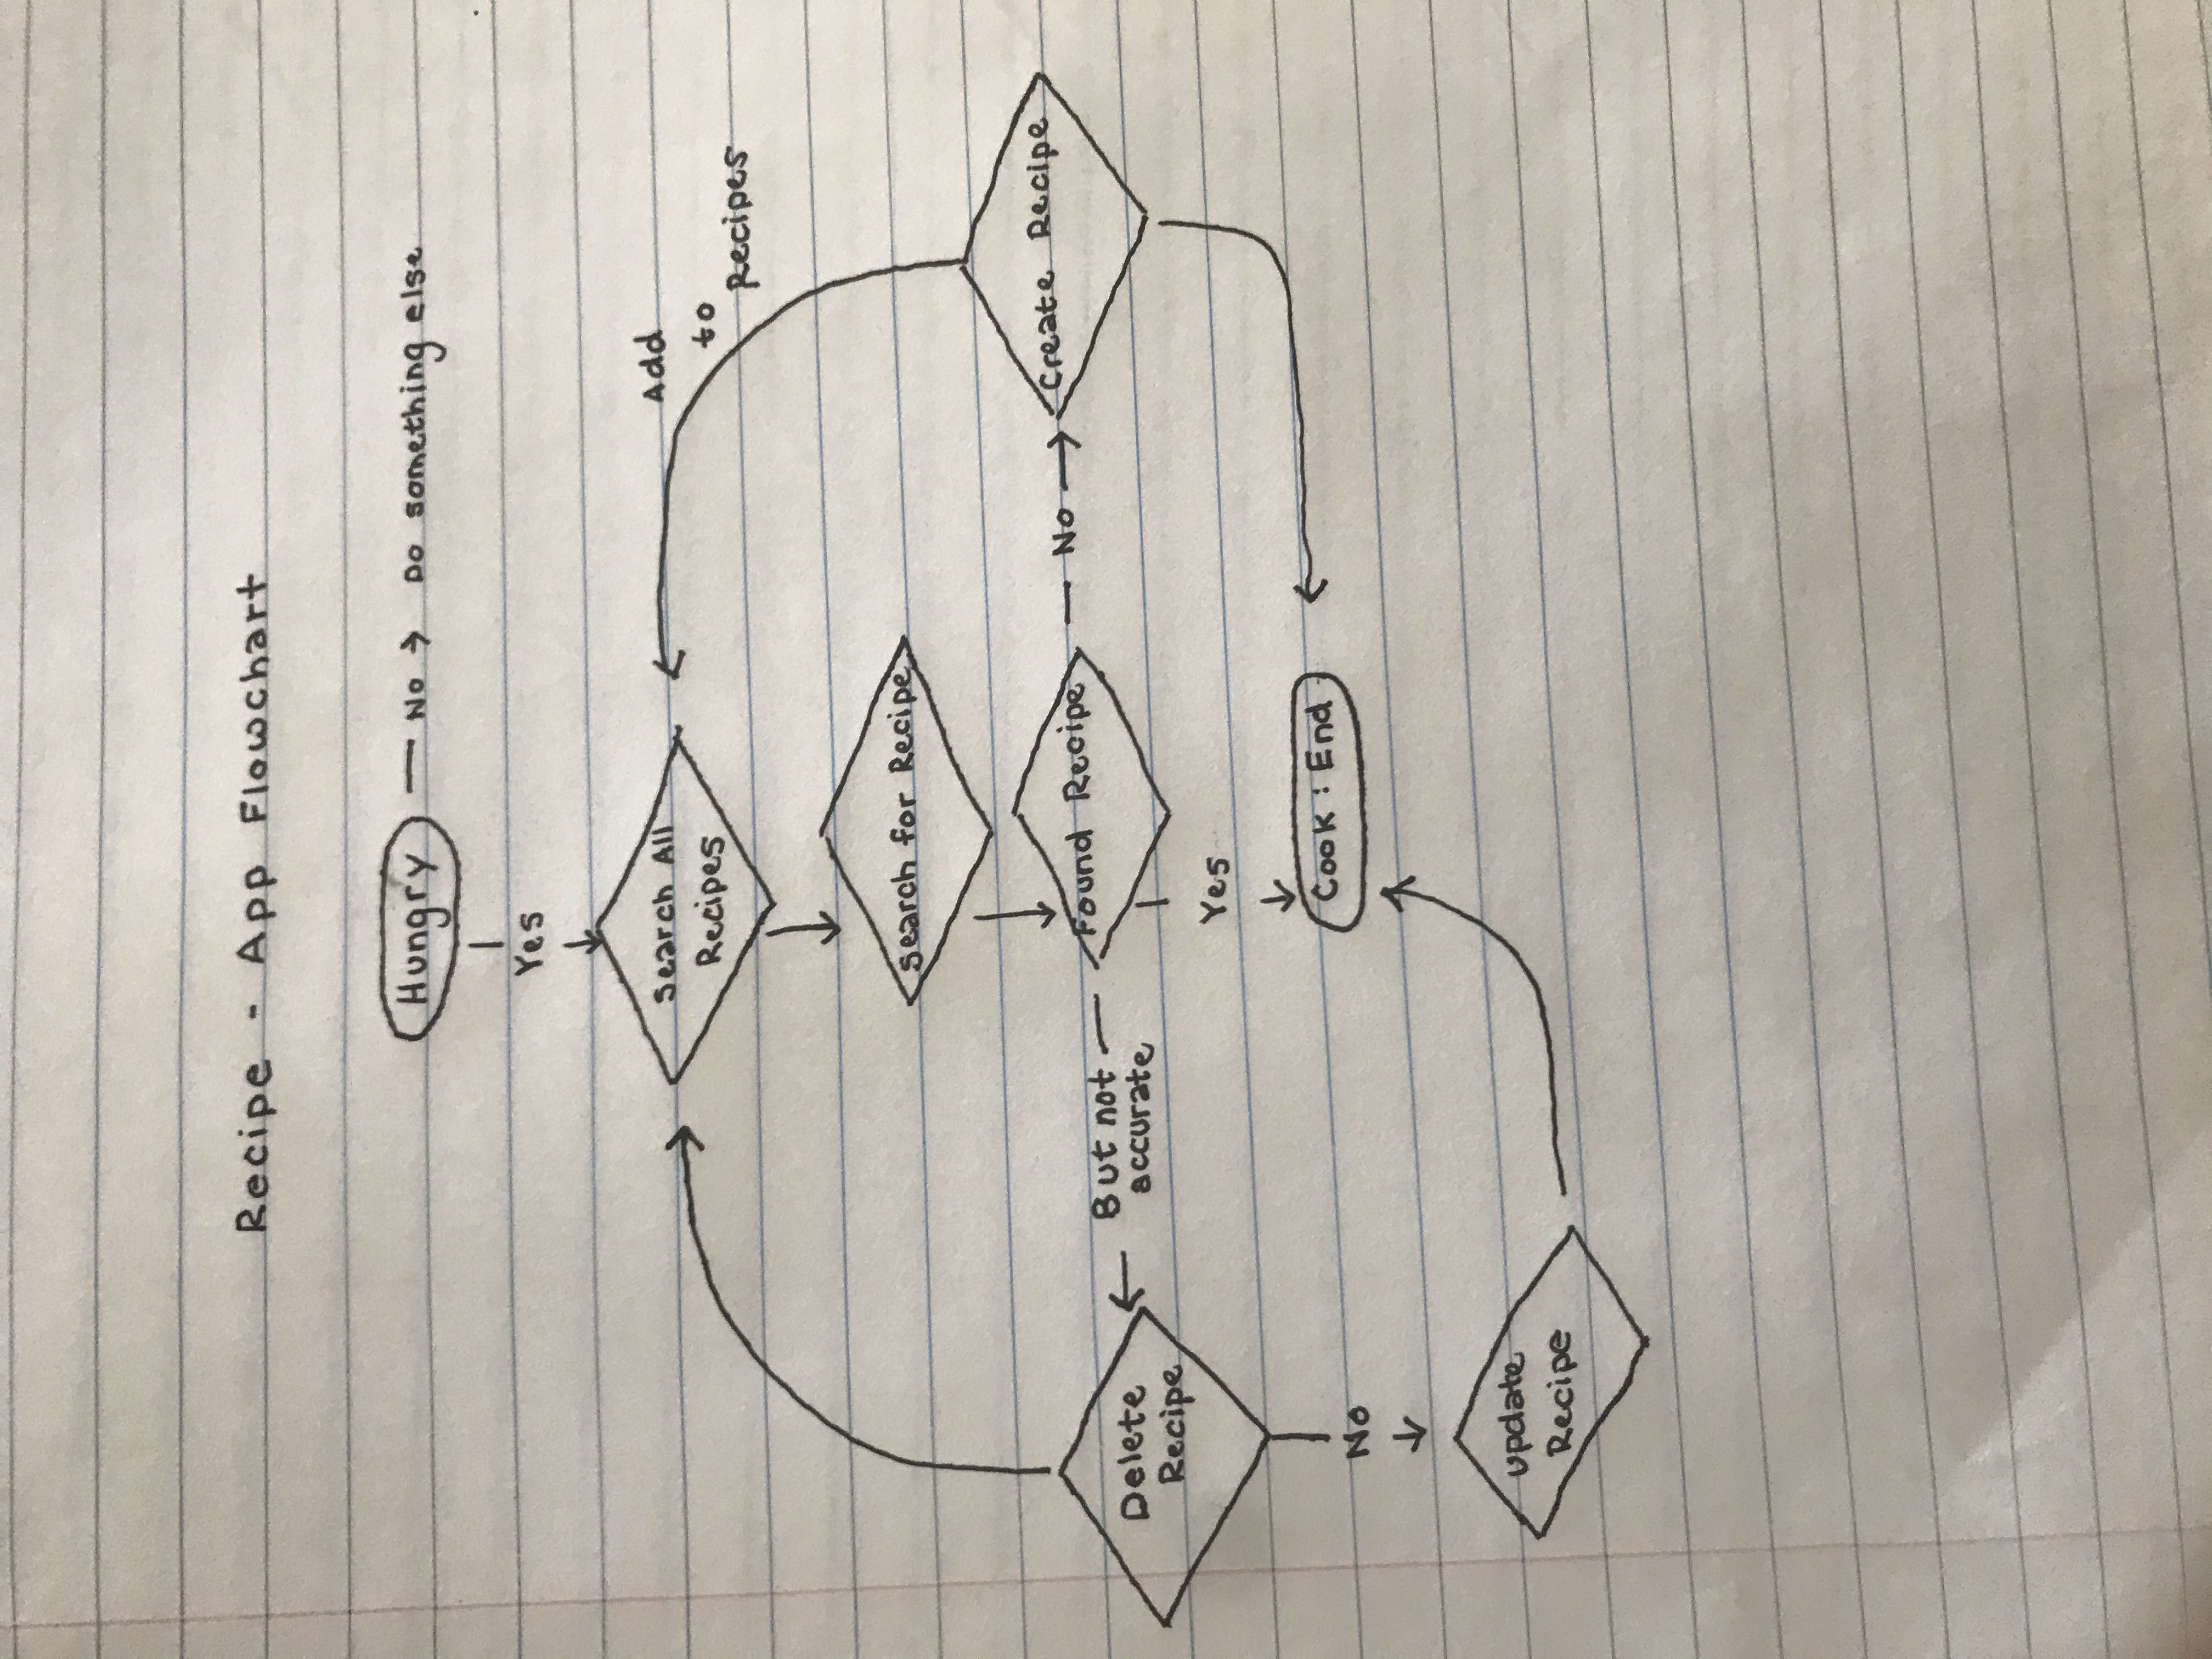 Recipe - App Flowchart
Hungry — No → Do something else
Yes
Search All
Recipes
Add
to
Recipes
Search for Recipe
Found Recipe
No
Create Recipe
But not
accurate
Delete
Recipe
Yes
Cook : End
No
Update
Recipe